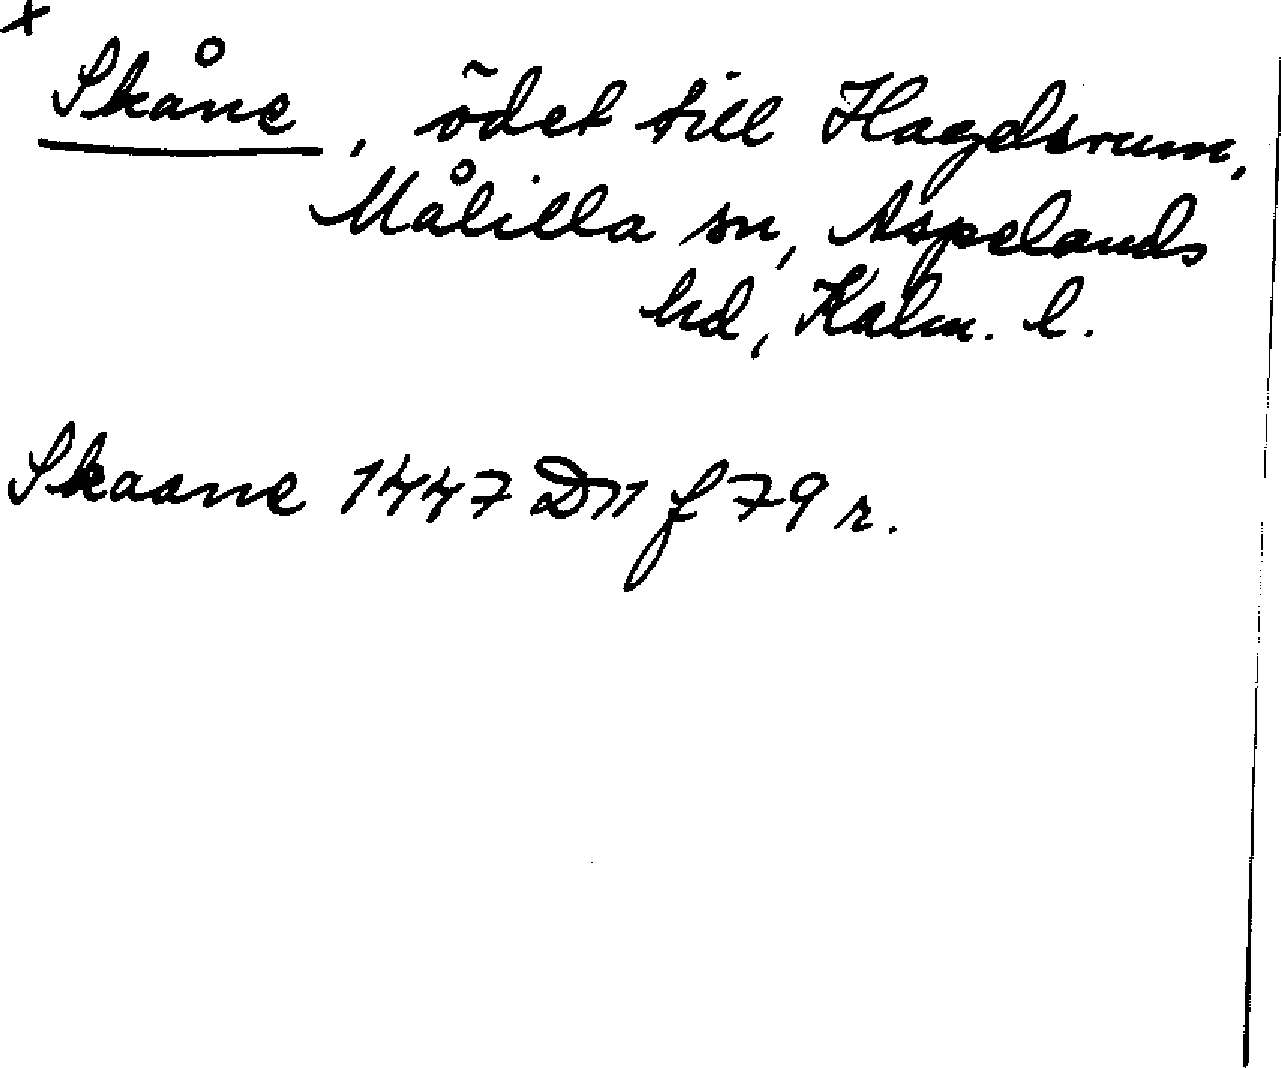 +
Skåne, ödet till Hagelsrum,
Målilla sn, Aspelands
hd, Kalm. l.
Skaane 1447 D11 f 79 r.